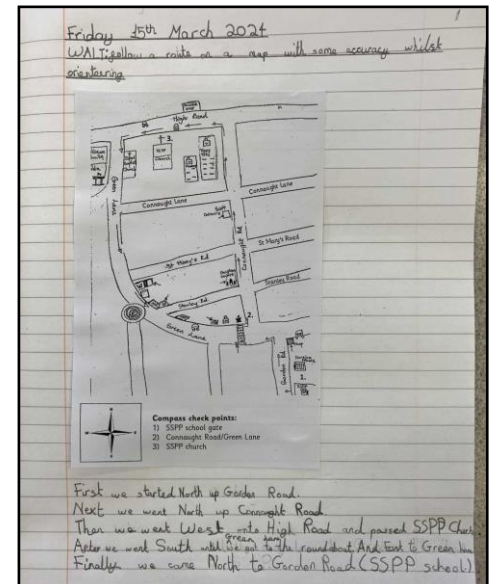 1
Friday 15th March 2024
WALT: follow a route on a map with some accuracy whilst
orienteering
High Road
3.
Church
Green Lane
Connaught Lane
Connaught Lane
St Mary's Road
St Mary's Rd
Connaught Rd
Stanley Road
Stanley Rd
2.
Green Lane
Gordon Rd
1.
Compass check points:
1) SSPP school gate
2) Connaught Road/Green Lane
3) SSPP church
First we started North up Gordon Road.
Next we went North up Connaught Road.
Then we went West onto High Road and passed SSPP Church
After we went South until we got to the roundabout And East to Green lane
Green lane
Finally we came North to Gordon Road (SSPP school).